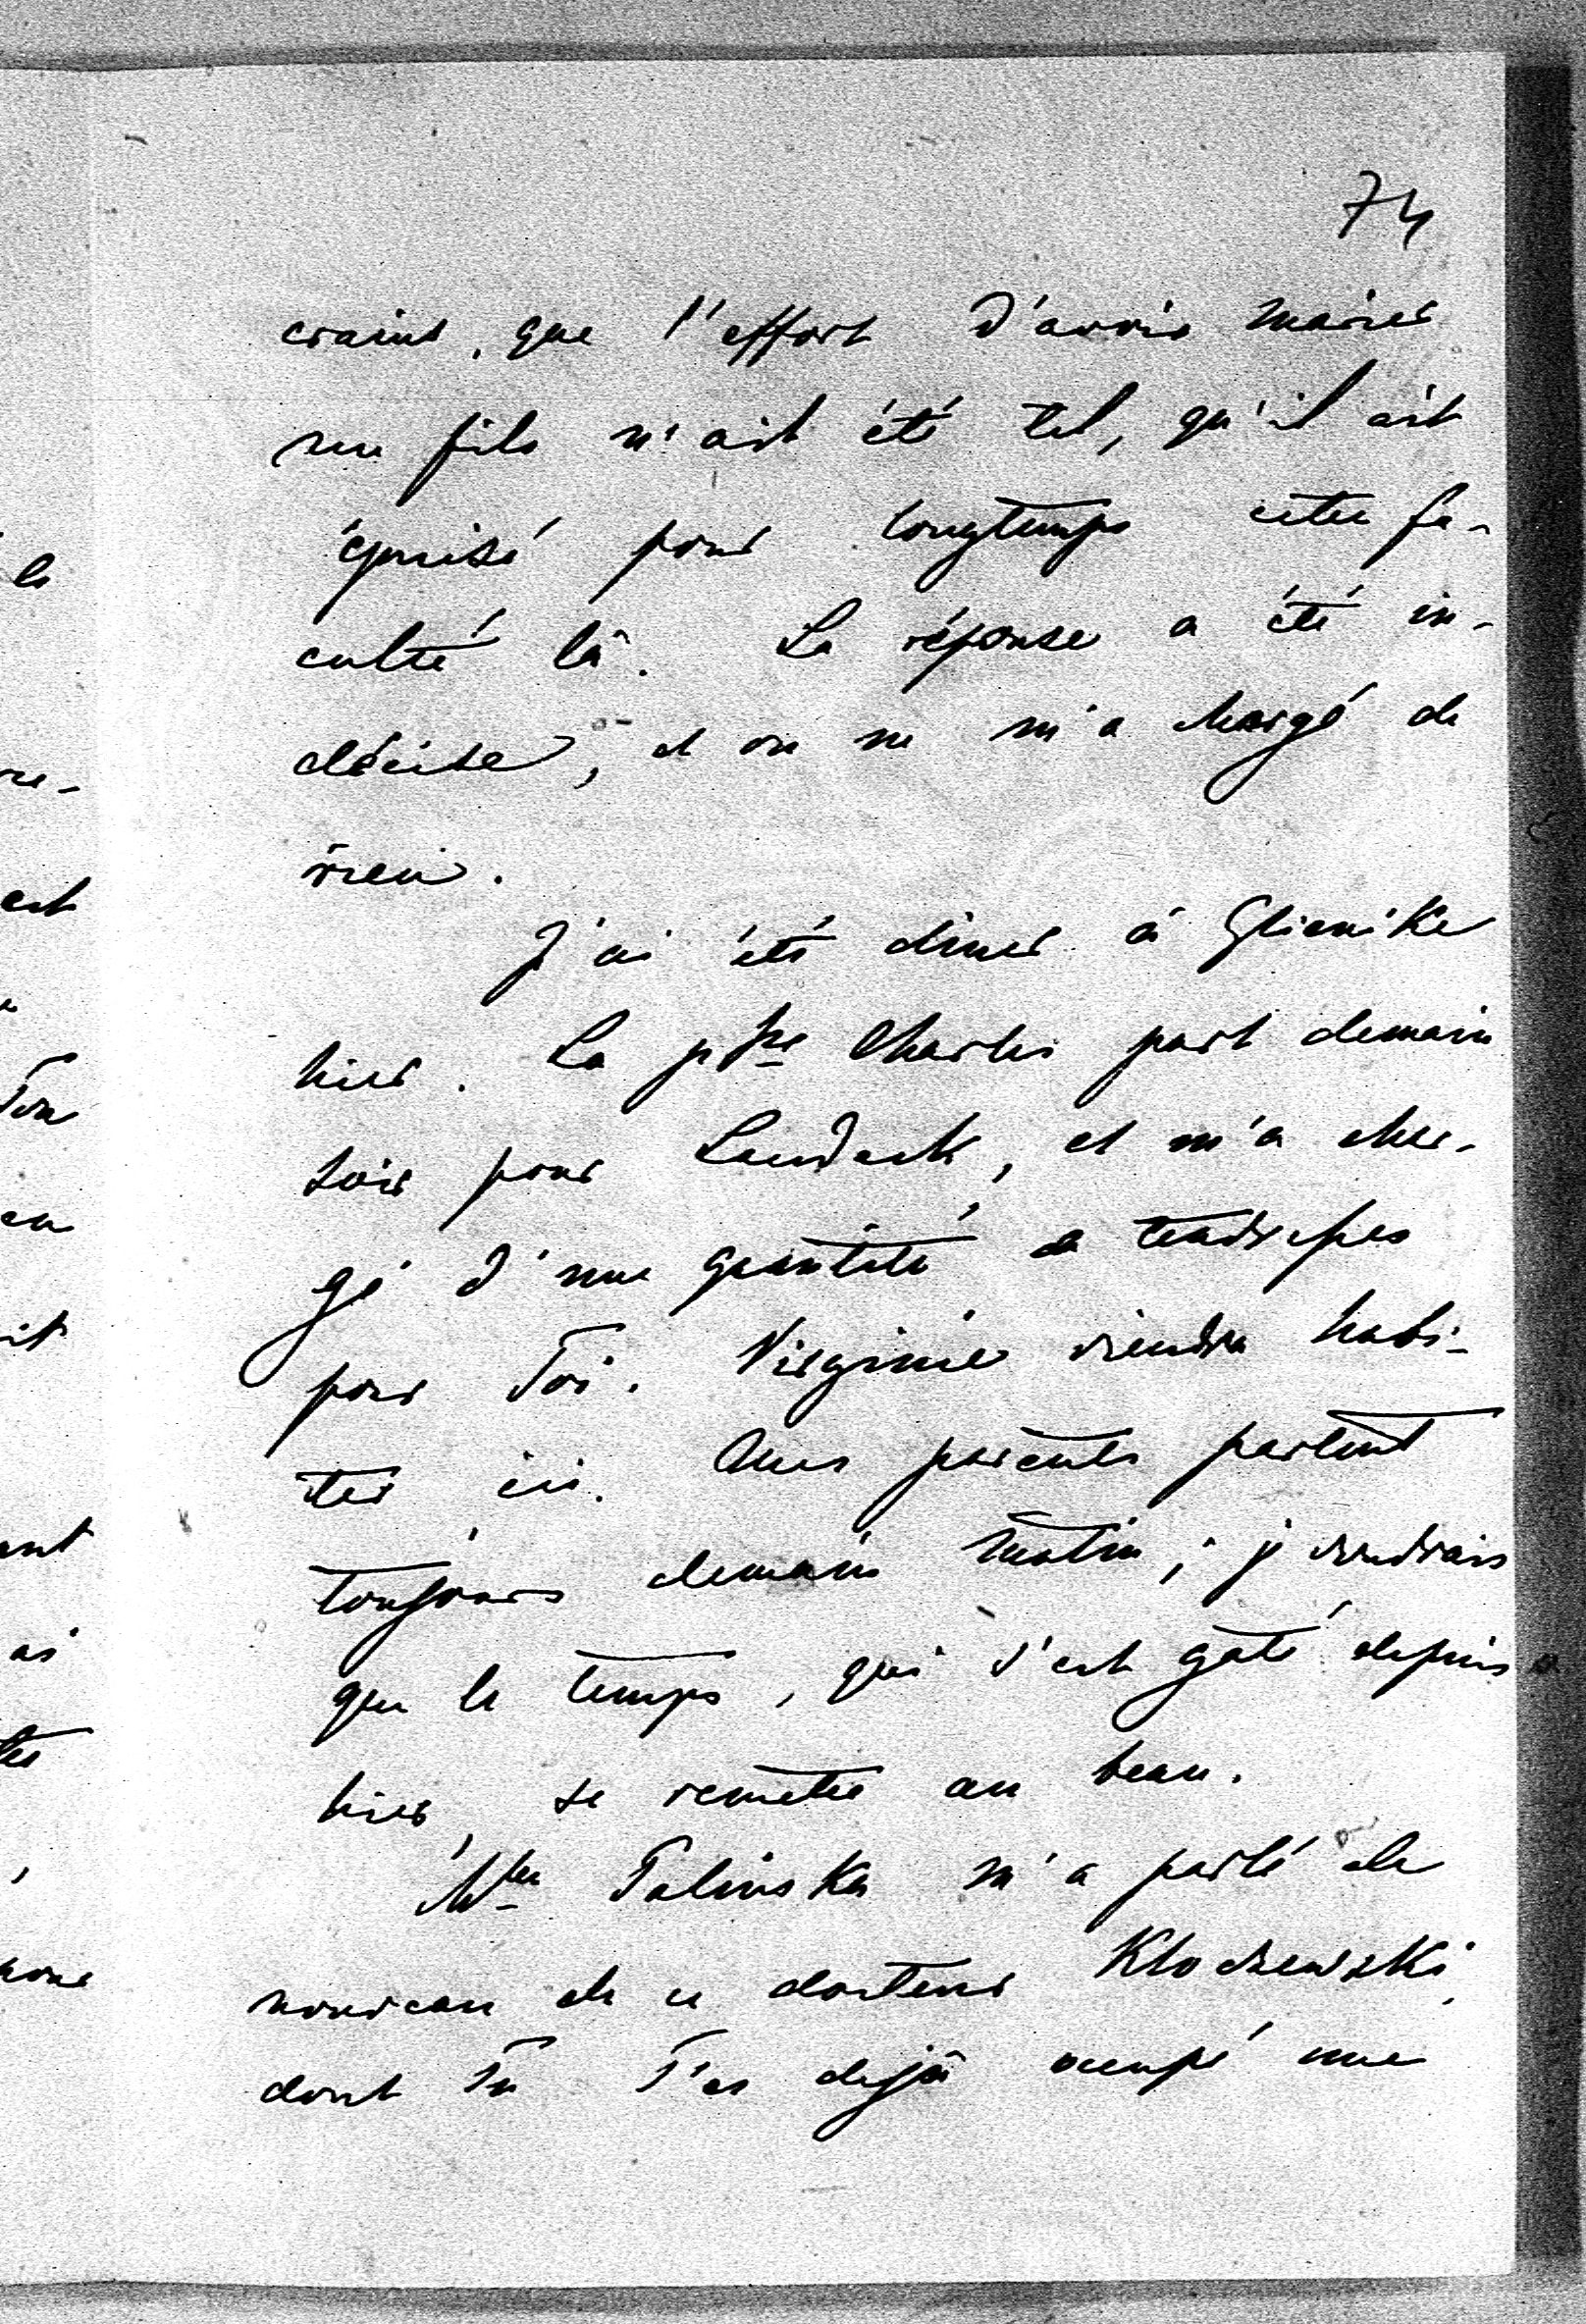 74
craint, que l'effort d'avoir marier
un fils n'ait été tel, qu'il ait
épuisé pour longtemps cette fa-
culté là. La réponse a été in-
décise, et on ne m'a chargé de
rien.
J'ai été diner à Glienike
hier. La psse Charles part demain
soir pour Landeck, et m'a char-
gé d'une quantité de tendresses
pour Toi. Virginie viendra habi-
ter ici. Mes parents partent
toujours demain matin; je voudrais
que le temps, qui s'est gâté depuis
hier, se remette au beau.
Palinska m'a parlé de
nouveau de ce docteur Klochewski,
dont Tu T'es dejà occupé une